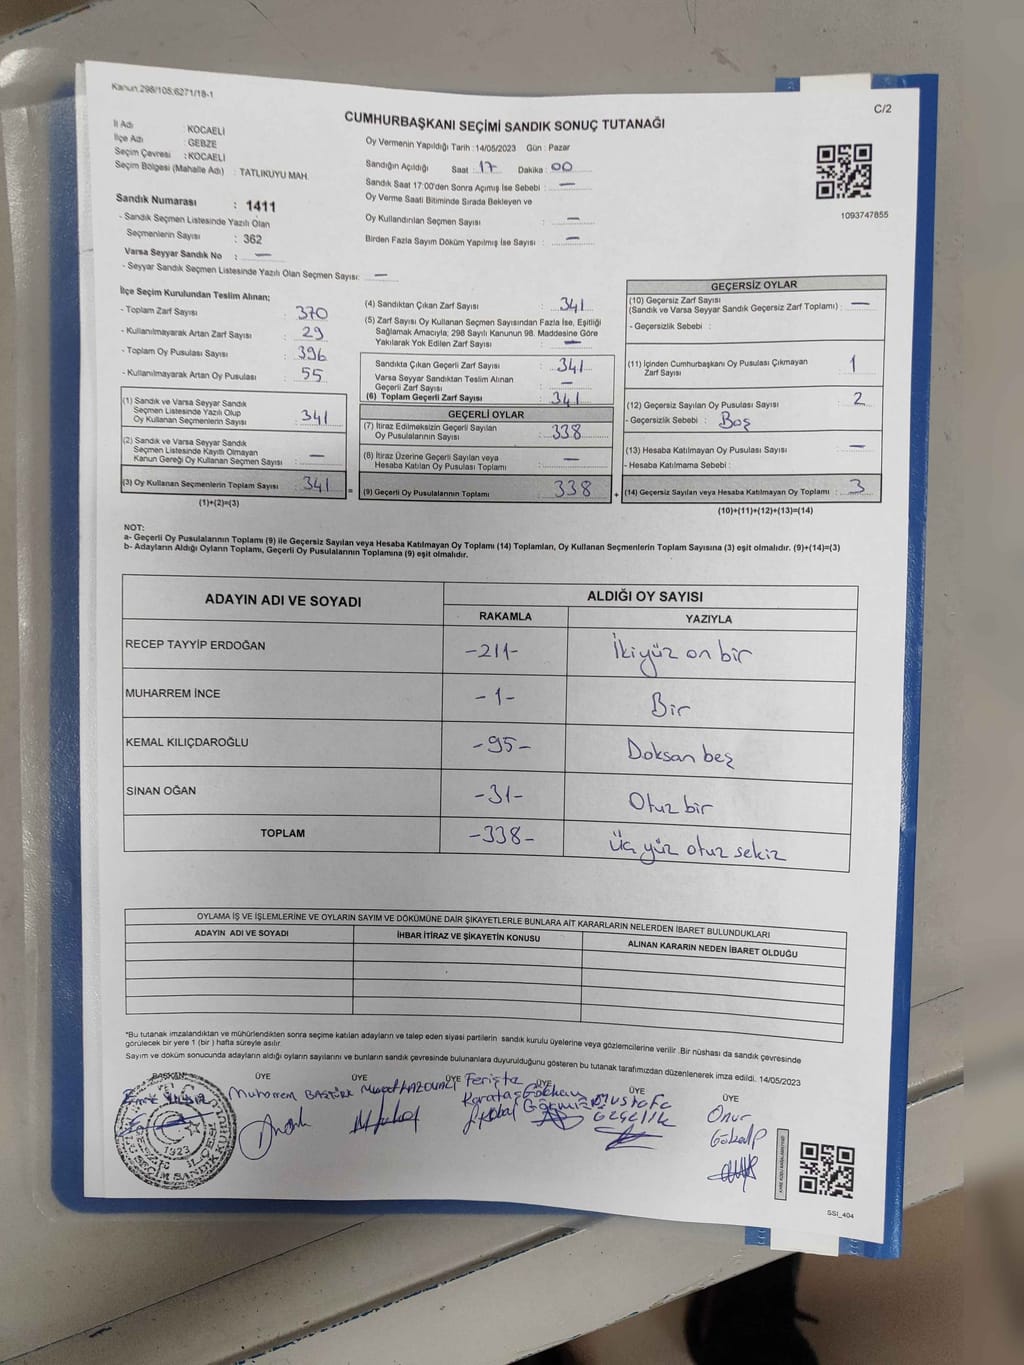 Kanun.298/105;6271/18-1
C/2
CUMHURBAŞKANI SEÇİMİ SANDIK SONUÇ TUTANAĞI
İl Adı : KOCAELİ
İlçe Adı : GEBZE
Seçim Çevresi : KOCAELİ
Seçim Bölgesi (Mahalle Adı) : TATLIKUYU MAH.
Oy Vermenin Yapıldığı Tarih : 14/05/2023 Gün : Pazar
Sandığın Açıldığı Saat : 17 Dakika : 00
Sandık Saat 17:00'den Sonra Açımış İse Sebebi : —
Oy Verme Saati Bitiminde Sırada Bekleyen ve
Oy Kullandırılan Seçmen Sayısı : —
Birden Fazla Sayım Döküm Yapılmış İse Sayısı : —
1093747855
Sandık Numarası : 1411
- Sandık Seçmen Listesinde Yazılı Olan
Seçmenlerin Sayısı : 362
Varsa Seyyar Sandık No : —
- Seyyar Sandık Seçmen Listesinde Yazılı Olan Seçmen Sayısı: —
İlçe Seçim Kurulundan Teslim Alınan;
- Toplam Zarf Sayısı : 370
- Kullanılmayarak Artan Zarf Sayısı : 29
- Toplam Oy Pusulası Sayısı : 396
- Kullanılmayarak Artan Oy Pusulası : 55
(1) Sandık ve Varsa Seyyar Sandık
Seçmen Listesinde Yazılı Olup
Oy Kullanan Seçmenlerin Sayısı : 341
(2) Sandık ve Varsa Seyyar Sandık
Seçmen Listesinde Kayıtlı Olmayan
Kanun Gereği Oy Kullanan Seçmen Sayısı : —
(3) Oy Kullanan Seçmenlerin Toplam Sayısı : 341
(1)+(2)=(3)
(4) Sandıktan Çıkan Zarf Sayısı : 341
(5) Zarf Sayısı Oy Kullanan Seçmen Sayısından Fazla İse, Eşitliği
Sağlamak Amacıyla; 298 Sayılı Kanunun 98. Maddesine Göre
Yakılarak Yok Edilen Zarf Sayısı : —
Sandıkta Çıkan Geçerli Zarf Sayısı : 341
Varsa Seyyar Sandıktan Teslim Alınan
Geçerli Zarf Sayısı : —
(6) Toplam Geçerli Zarf Sayısı : 341
GEÇERLİ OYLAR
(7) İtiraz Edilmeksizin Geçerli Sayılan
Oy Pusulalarının Sayısı : 338
(8) İtiraz Üzerine Geçerli Sayılan veya
Hesaba Katılan Oy Pusulası Toplamı : —
= (9) Geçerli Oy Pusulalarının Toplamı : 338
GEÇERSİZ OYLAR
(10) Geçersiz Zarf Sayısı
(Sandık ve Varsa Seyyar Sandık Geçersiz Zarf Toplamı) : —
- Geçersizlik Sebebi :
(11) İçinden Cumhurbaşkanı Oy Pusulası Çıkmayan
Zarf Sayısı : 1
(12) Geçersiz Sayılan Oy Pusulası Sayısı : 2
- Geçersizlik Sebebi : Boş
(13) Hesaba Katılmayan Oy Pusulası Sayısı : —
- Hesaba Katılmama Sebebi :
+ (14) Geçersiz Sayılan veya Hesaba Katılmayan Oy Toplamı : 3
(10)+(11)+(12)+(13)=(14)
NOT:
a- Geçerli Oy Pusulalarının Toplamı (9) ile Geçersiz Sayılan veya Hesaba Katılmayan Oy Toplamı (14) Toplamları, Oy Kullanan Seçmenlerin Toplam Sayısına (3) eşit olmalıdır. (9)+(14)=(3)
b- Adayların Aldığı Oyların Toplamı, Geçerli Oy Pusulalarının Toplamına (9) eşit olmalıdır.
ADAYIN ADI VE SOYADI
ALDIĞI OY SAYISI
RAKAMLA YAZIYLA
RECEP TAYYİP ERDOĞAN -211- İkiyüz on bir
MUHARREM İNCE -1- Bir
KEMAL KILIÇDAROĞLU -95- Doksan beş
SİNAN OĞAN -31- Otuz bir
TOPLAM -338- Üç yüz otuz sekiz
OYLAMA İŞ VE İŞLEMLERİNE VE OYLARIN SAYIM VE DÖKÜMÜNE DAİR ŞİKAYETLERLE BUNLARA AİT KARARLARIN NELERDEN İBARET BULUNDUKLARI
ADAYIN ADI VE SOYADI İHBAR İTİRAZ VE ŞİKAYETİN KONUSU ALINAN KARARIN NEDEN İBARET OLDUĞU
*Bu tutanak imzalandıktan ve mühürlendikten sonra seçime katılan adayların ve talep eden siyasi partilerin sandık kurulu üyelerine veya gözlemcilerine verilir .Bir nüshası da sandık çevresinde
görülecek bir yere 1 (bir ) hafta süreyle asılır.
Sayım ve döküm sonucunda adayların aldığı oyların sayılarını ve bunların sandık çevresinde bulunanlara duyurulduğunu gösteren bu tutanak tarafımızdan düzenlenerek imza edildi. 14/05/2023
BAŞKAN ÜYE ÜYE ÜYE ÜYE ÜYE ÜYE
Muharrem BAŞTÜRK
Ferişte
Karataş
Gökhan
Mustafa
Onur
Gökalp
1923
SSI_404